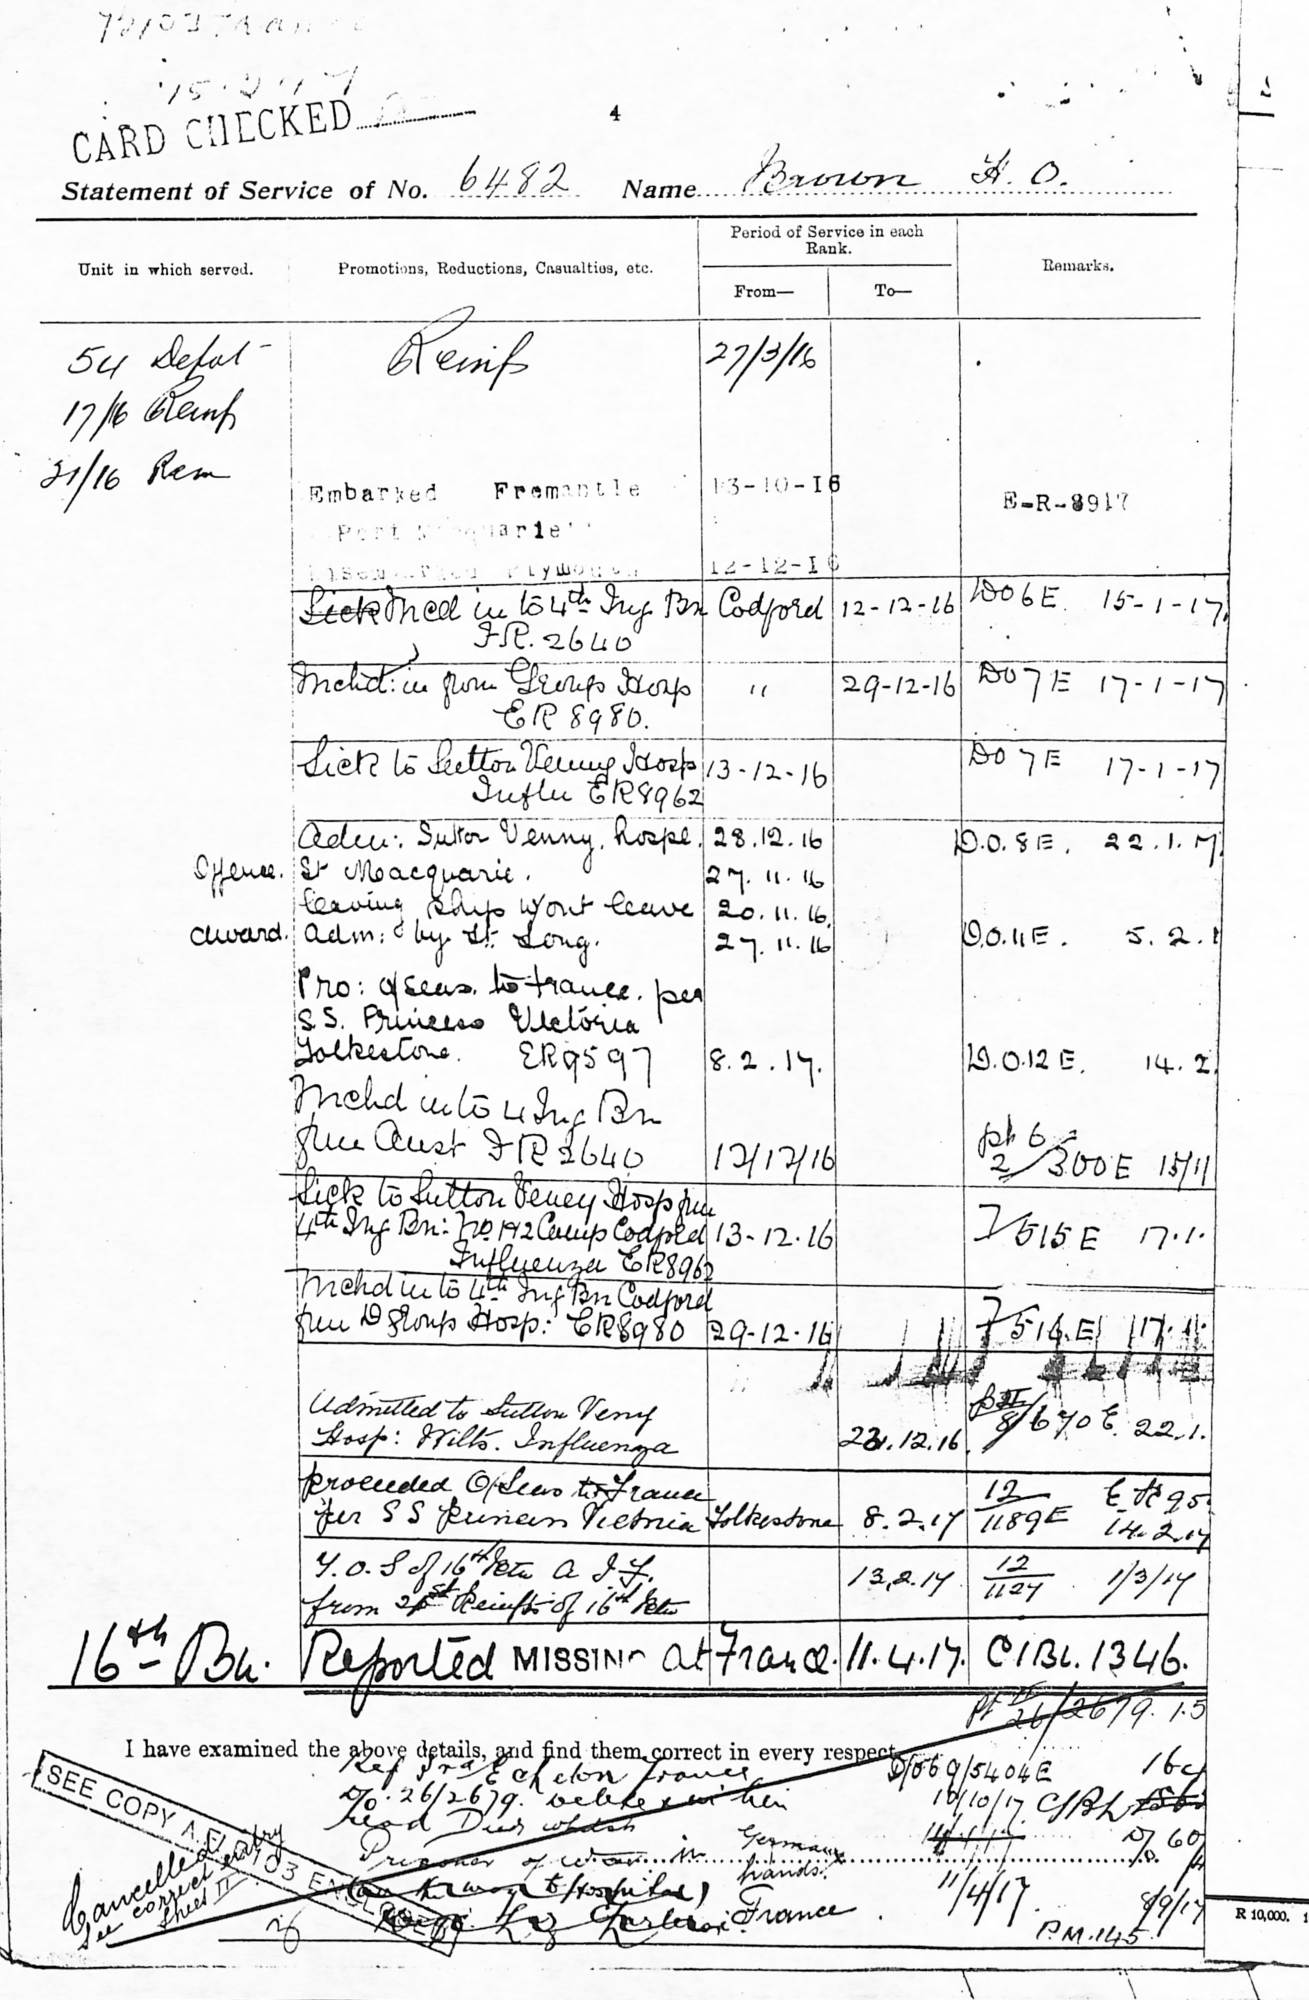 CARD CHECKED
4
Statement of Service of No. 6482 Name Brown H. O.
Unit in which served.
Promotions, Reductions, Casualties, etc.
Period of Service in each Rank.
From—
To—
Remarks.
54 Depot Reinfs 27/3/16
17/16 Reinfs
21/16 Rein
Embarked Fremantle 13-10-16 E-R-8917
12-12-16
Sick Mcd in to 4th Trg Bn Codford 12-12-16 DO6E. 15-1-17.
FR. 2640
Mchd: in from Groups Hosp " 29-12-16 DO7E 17-1-17
ER 8980.
Sick to Sutton Venny Hosp 13-12-16 DO7E 17-1-17
Influ ER8962
Adm: Sutton Venny. hospl. 28.12.16 D.O.8E. 22.1.17.
Offence. St Macquarie. 27.11.16
leaving ship w/out leave 20.11.16.
Award. adm: by Lt. Long. 27.11.16 D.O.11E. 5.2.1
Pro: o/seas. to France. per
S.S. Princess Victoria
Folkestone. ER9597 8.2.17. D.O.12E. 14.2.
Mchd in to 4 Trg Bn
from Aust FR2640 12/12/16
Sick to Sutton Veney Hosp from
4th Trg Bn: No. 12 Camp Codford 13-12-16 7/515E 17.1.
Influenza ER8962
Mchd in to 4th Trg Bn Codford
from D Groups Hosp: ER8980 29-12-16 7/516.E 17.1.
Admitted to Sutton Veny
Hosp: Wilts. Influenza .12.16. 8/670E. 22.1.
proceeded O/Seas to France 12 E R 95
per SS Princess Victoria Folkestone 8.2.17 1189E 14.2.17
T.O.S of 16th Btn A.I.F. 13.2.17 12
from 21st Reinfts of 16th Btn 1127 1/3/17
16th Bn. Reported MISSING at France. 11.4.17. C1BL.1346.
pt II 26/2679. 1.5
I have examined the above details, and find them correct in every respect
Ref 3rd Echelon France
D/O. 26/2679. delete within
read Died whilst
Prisoner of War in German
hands.
11/4/17
France
8/9/17
P.M.145
SEE COPY A.F.
Cancelled
See correct entry
Sheet II
R 10,000.